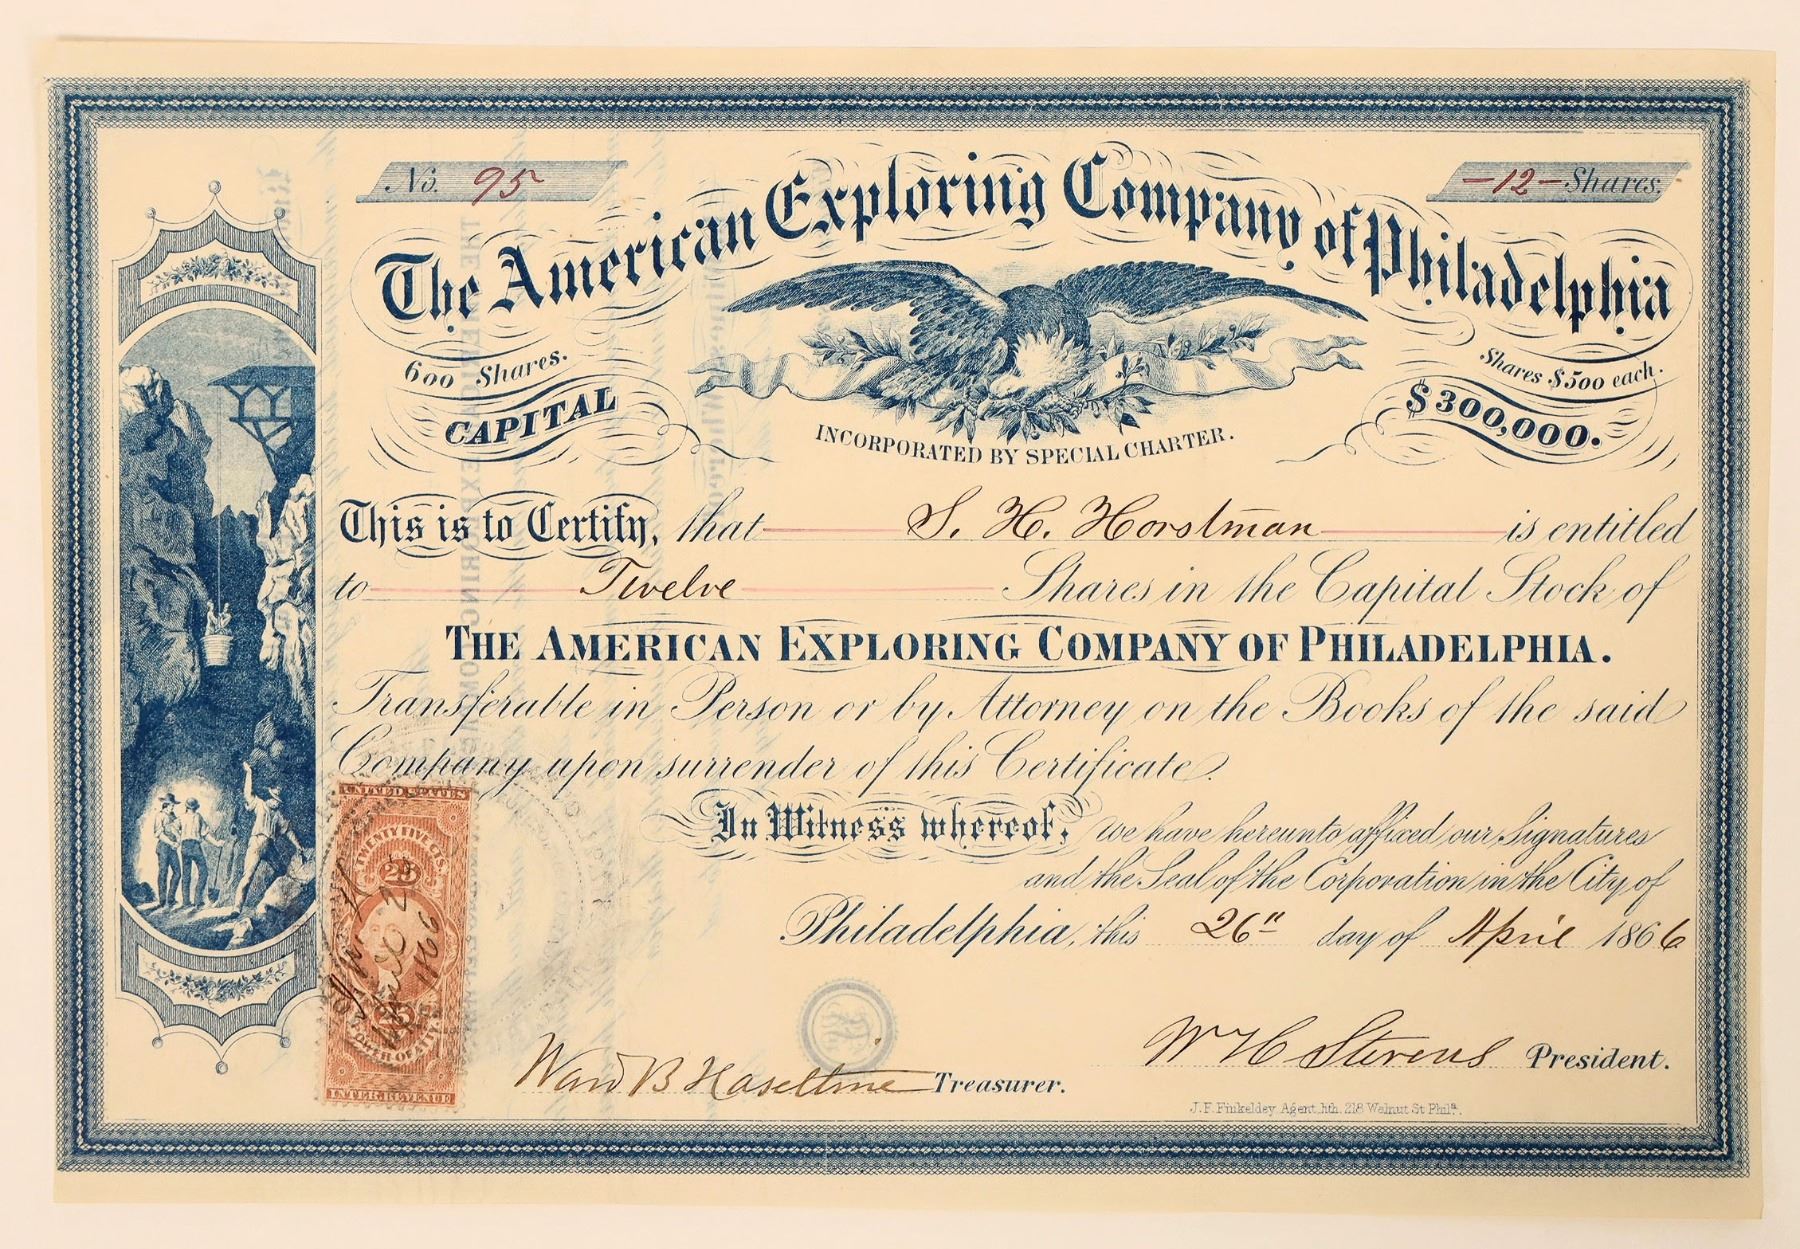 No. 95
-12- Shares.
The American Exploring Company of Philadelphia
600 Shares.
Shares $500 each.
CAPITAL
$300,000.
INCORPORATED BY SPECIAL CHARTER.
This is to Certify, that S. H. Horstman is entitled
to Twelve Shares in the Capital Stock of
THE AMERICAN EXPLORING COMPANY OF PHILADELPHIA.
Transferable in Person or by Attorney on the Books of the said
Company upon surrender of this Certificate.
In Witness whereof, we have hereunto affixed our Signatures
and the Seal of the Corporation in the City of
Philadelphia, this 26th day of April 1866
UNITED STATES
TWENTY FIVE CTS.
25
April 26
1866
25
POWER OF ATT'Y
INTER. REVENUE
Ward B Haseltine Treasurer.
W H Stevens President.
J. F. Finkeldey Agent, lith. 218 Walnut St Phila.